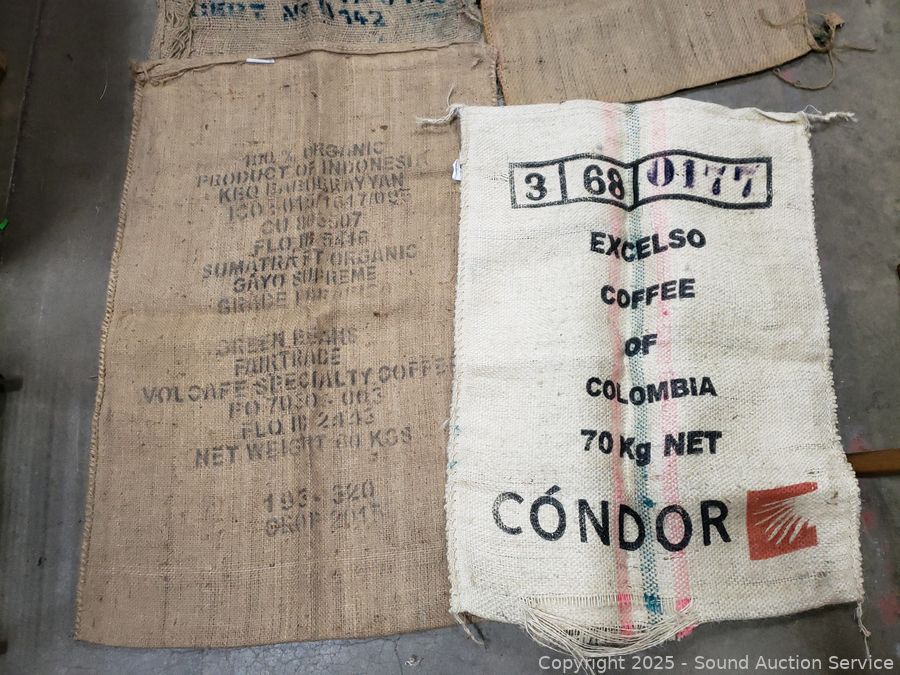 CERT NO
142
100% ORGANIC
PRODUCT OF INDONESIA
KBQ BABURRAYYAN
CU 803507
FLO ID 5416
SUMATRA FT ORGANIC
GAYO SUPREME
GRADE I
GREEN BEANS
FAIRTRADE
VOLCAFE SPECIALTY COFFEE
PO 7030 - 063
FLO ID 2443
NET WEIGHT 60 KGS
193-320
CROP 2015
3 68 0177
EXCELSO
COFFEE
OF
COLOMBIA
70Kg NET
CÓNDOR
Copyright 2025 - Sound Auction Service